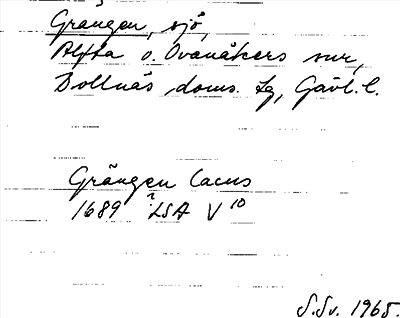 Grängen, sjö,
Alfta o. Ovanåkers snr,
Bollnäs doms. lg, Gävl. l.
Grängen lacus
1689 ? LSA V 10
S. Sv. 1965.